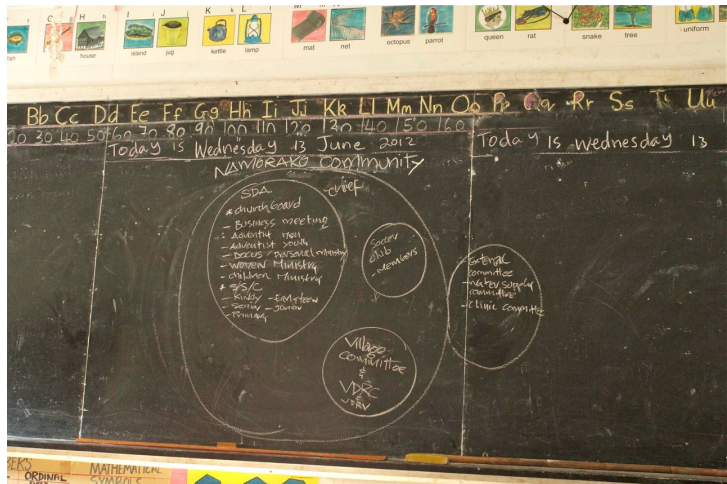 house
island
jug
kettle
lamp
mat
net
octopus
parrot
queen
rat
snake
tree
uniform
Bb Cc Dd Ee Ff Gg Hh Ii Jj Kk Ll Mm Nn Oo Pp Qq Rr Ss T Uu
30 40 50 60 70 80 90 100 110 120 130 140 150 160
Today is Wednesday 13 June 2012
Today is Wednesday 13
NAMORAKO Community
chief
SDA
* church Board
- Business meeting
- Adventist men
- Adventist Youth
- Docus / personal ministry
- Women Ministry
- children Ministry
* S/S/C
- Kindy - Earliteen
- Senior - Junior
- Primary
Soccer
club
- Members
- External
committee
- Water supply
committee
- Clinic committee
Village
committee
&
VDRC
MATHEMATICAL
SYMBOLS
ORDINAL